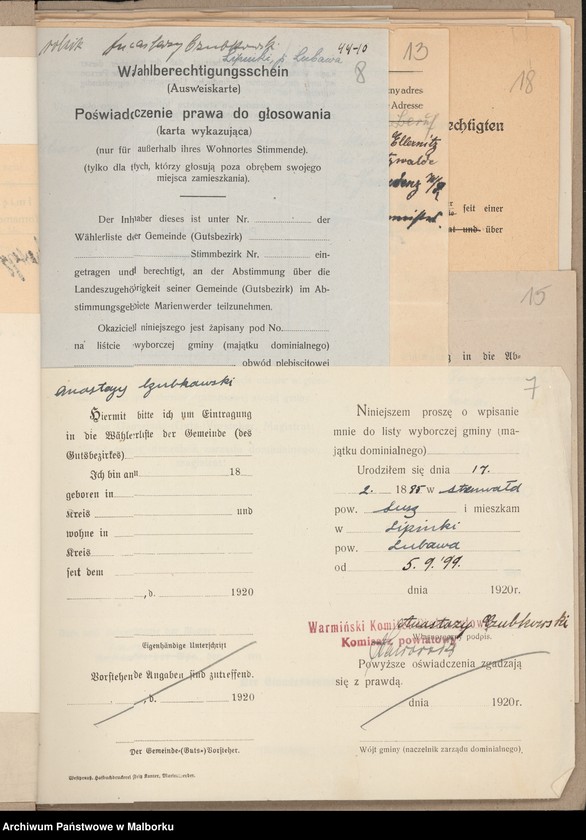 rolnik Anastazy Czubkowski 44-10
Lipinki, p. Lubawa
8
Wahlberechtigungsschein
(Ausweiskarte)
Poświadczenie prawa do głosowania
(karta wykazująca)
(nur für außerhalb ihres Wohnortes Stimmende).
(tylko dla tych, którzy głosują poza obrębem swojego
miejsca zamieszkania).
Der Inhaber dieses ist unter Nr. der
Wählerliste der Gemeinde (Gutsbezirk)
Stimmbezirk Nr. ein-
getragen und berechtigt, an der Abstimmung über die
Landeszugehörigkeit seiner Gemeinde (Gutsbezirk) im Ab-
stimmungsgebiete Marienwerder teilzunehmen.
Okaziciel niniejszego jest zapisany pod No.
na liście wyborczej gminy (majątku dominialnego)
obwód plebiscitowej
13
ny adres
Adresse
Beruf
18
echtigten
seit einer
und über
15
in die Ab-
Anastazy Czubkowski
7
Hiermit bitte ich um Eintragung
in die Wählerliste der Gemeinde (des
Gutsbezirkes)
Ich bin am 18
geboren in
Kreis und
wohne in
Kreis
seit dem
, d. 1920
Eigenhändige Unterschrift
Vorstehende Angaben sind zutreffend.
, d. 1920
Der Gemeinde-(Guts-)Vorsteher.
Niniejszem proszę o wpisanie
mnie do listy wyborczej gminy (ma-
jątku dominialnego)
Urodziłem się dnia 17.
2. 1885 w
pow. Susz i mieszkam
w Lipinki
pow. Lubawa
od 5. 9. '99.
dnia 1920r.
Anastazy Czubkowski
Warmiński Komi
Komisarz powiatowy
podpis.
Powyższe oświadczenia zgadzają
się z prawdą.
dnia 1920r.
Wójt gminy (naczelnik zarządu dominialnego)
Archiwum Państwowe w Malborku